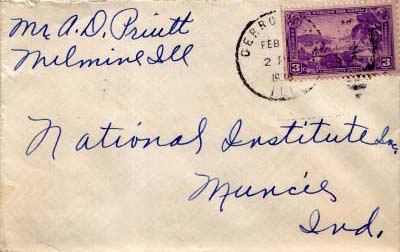 Mr. A. D. Pruitt
Milmine Ill
CERRO
FEB
2 P
193
ILL
3 3
National Institute Inc.
Muncie,
Ind.